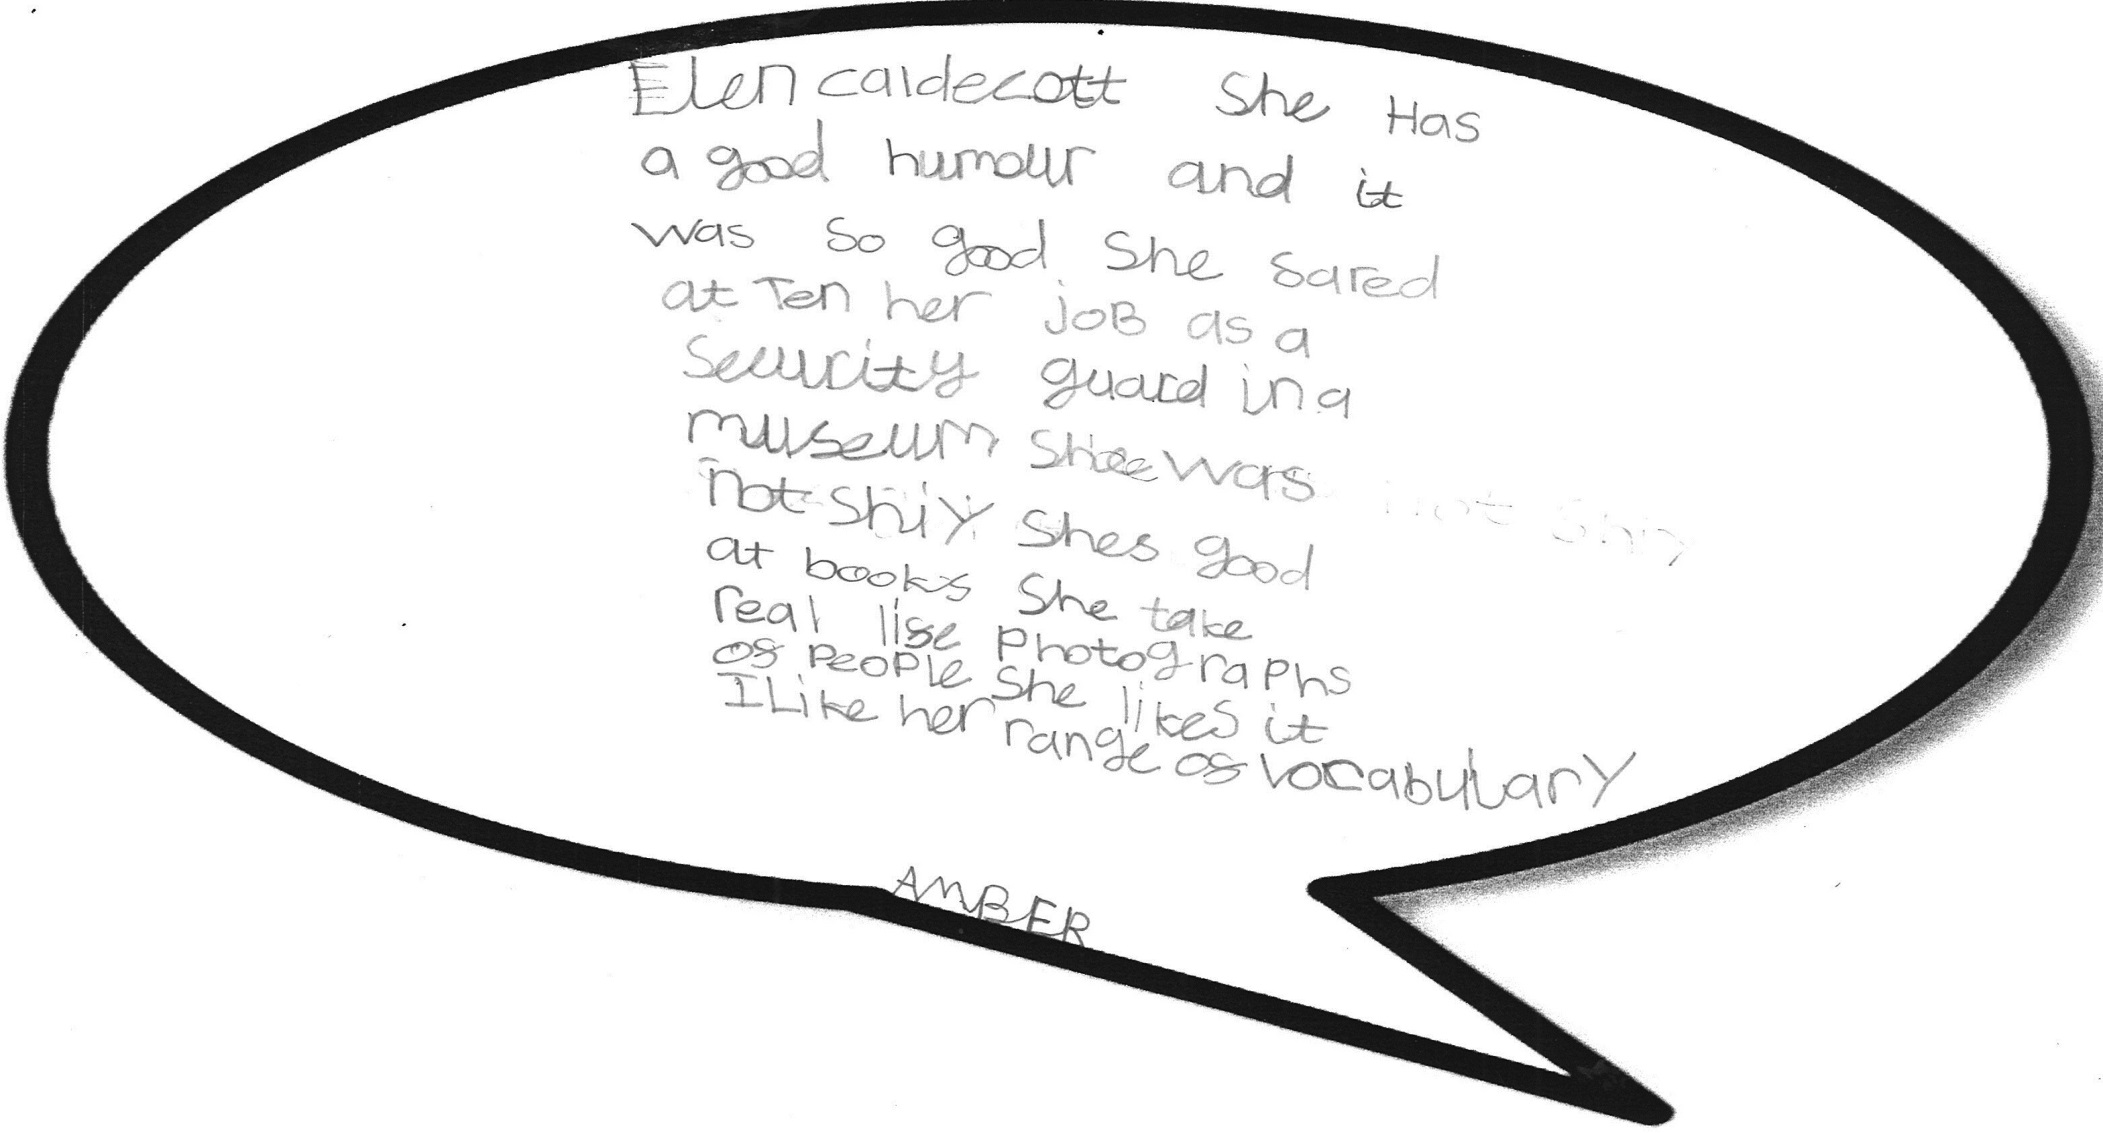 Elen caldecott She Has
a good humour and it
was so good she sared
at Ten her joB as a
Security guard in a
museum Shee was
not ShiY Shes good
at books She take
real lise Photographs
os PeoPle She likes it
I Like her range os vocabulary
AMBER